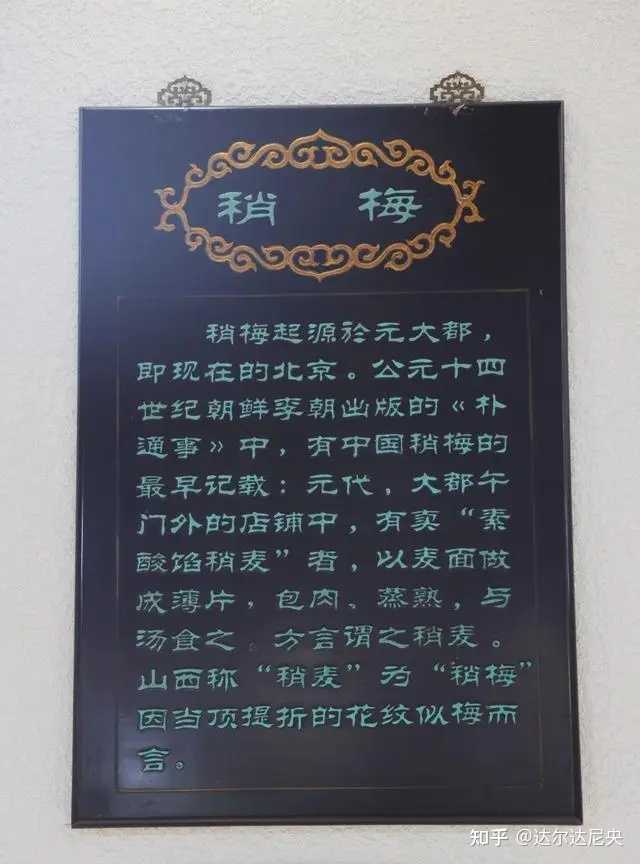 稍 梅
稍梅起源於元大都，
即现在的北京。公元十四
世纪朝鲜李朝出版的《朴
通事》中，有中国稍梅的
最早记载：元代，大都午
门外的店铺中，有卖“素
酸馅稍麦”者，以麦面做
成薄片，包肉、蒸熟，与
汤食之 方言谓之稍麦。
山西称“稍麦”为“稍梅”
因当顶提折的花纹似梅而
言。
知乎 @达尔达尼央